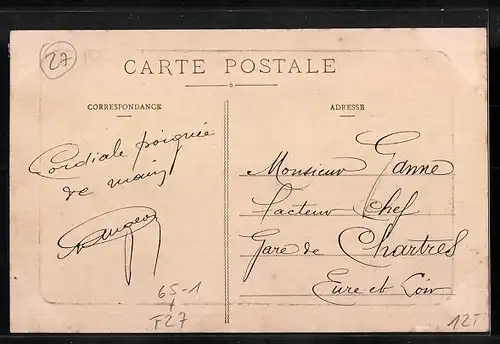 27
CARTE POSTALE
CORRESPONDANCE
Cordiale poignée
de main
ADRESSE
Monsieur Ganne
Facteur Chef
Gare de Chartres
Eure et Loir
65-1
F27
12T